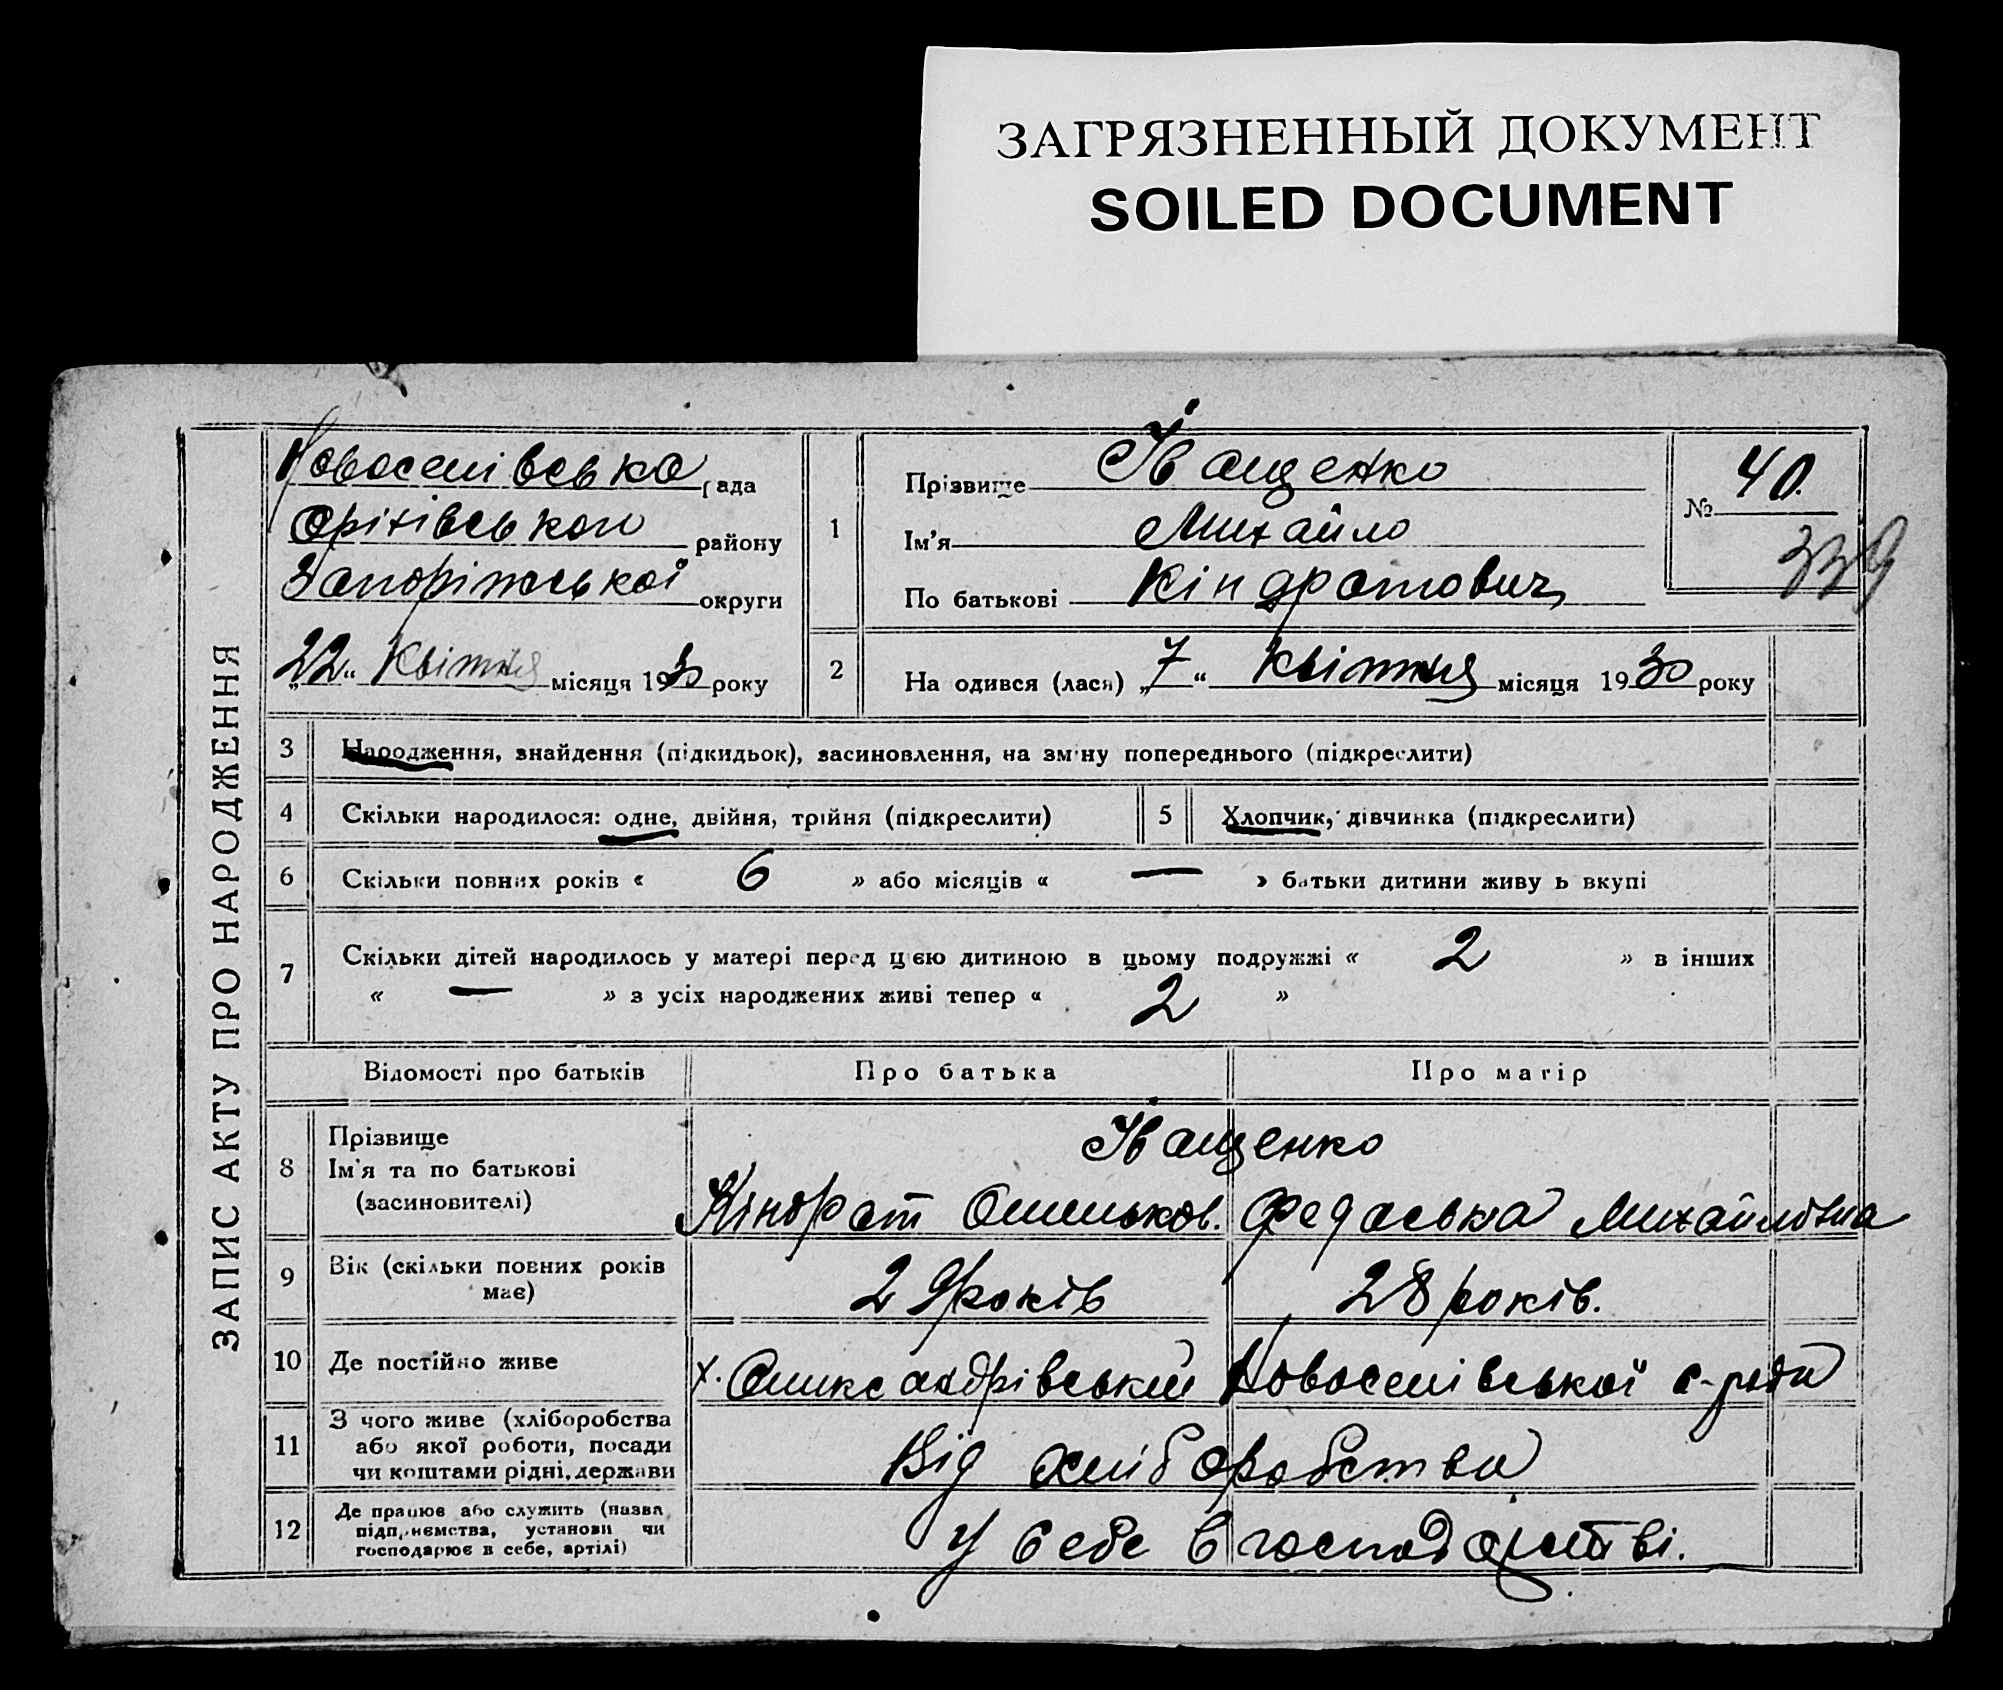 ЗАГРЯЗНЕННЫЙ ДОКУМЕНТ
SOILED DOCUMENT
ЗАПИС АКТУ ПРО НАРОДЖЕННЯ
Новоселівська рада
Оріхівського району
Запоріжської округи
„22“ Квітня місяця 1930 року
1
Прізвище Іващенко
Ім'я Михайло
По батькові Кіндратович
№ 40.
339
2 На одився (лася) „7“ Квітня місяця 1930 року
3 Народження, знайдення (підкидьок), засиновлення, на зміну попереднього (підкреслити)
4 Скільки народилося: одне, двійня, трійня (підкреслити) 5 Хлопчик, дівчинка (підкреслити)
6 Скільки повних років « 6 » або місяців « — » батьки дитини живу ь вкупі
7 Скільки дітей народилось у матері перед цією дитиною в цьому подружжі « 2 » в інших
« — » з усіх народжених живі тепер « 2 »
Відомості про батьків Про батька Про матір
8 Прізвище Іващенко
Ім'я та по батькові
(засиновителі) Кіндрат Федоська Михайловна
9 Вік (скільки повних років має) 29 років 28 років.
10 Де постійно живе х. Олександрівський Новоселівської с-ради
11 З чого живе (хліборобства
або якої роботи, посади
чи коштами рідні, держави Від хліборобства
12 Де працює або служить (назва
підприємства, установи чи
господарює в себе, артілі) У себе в господарстві.